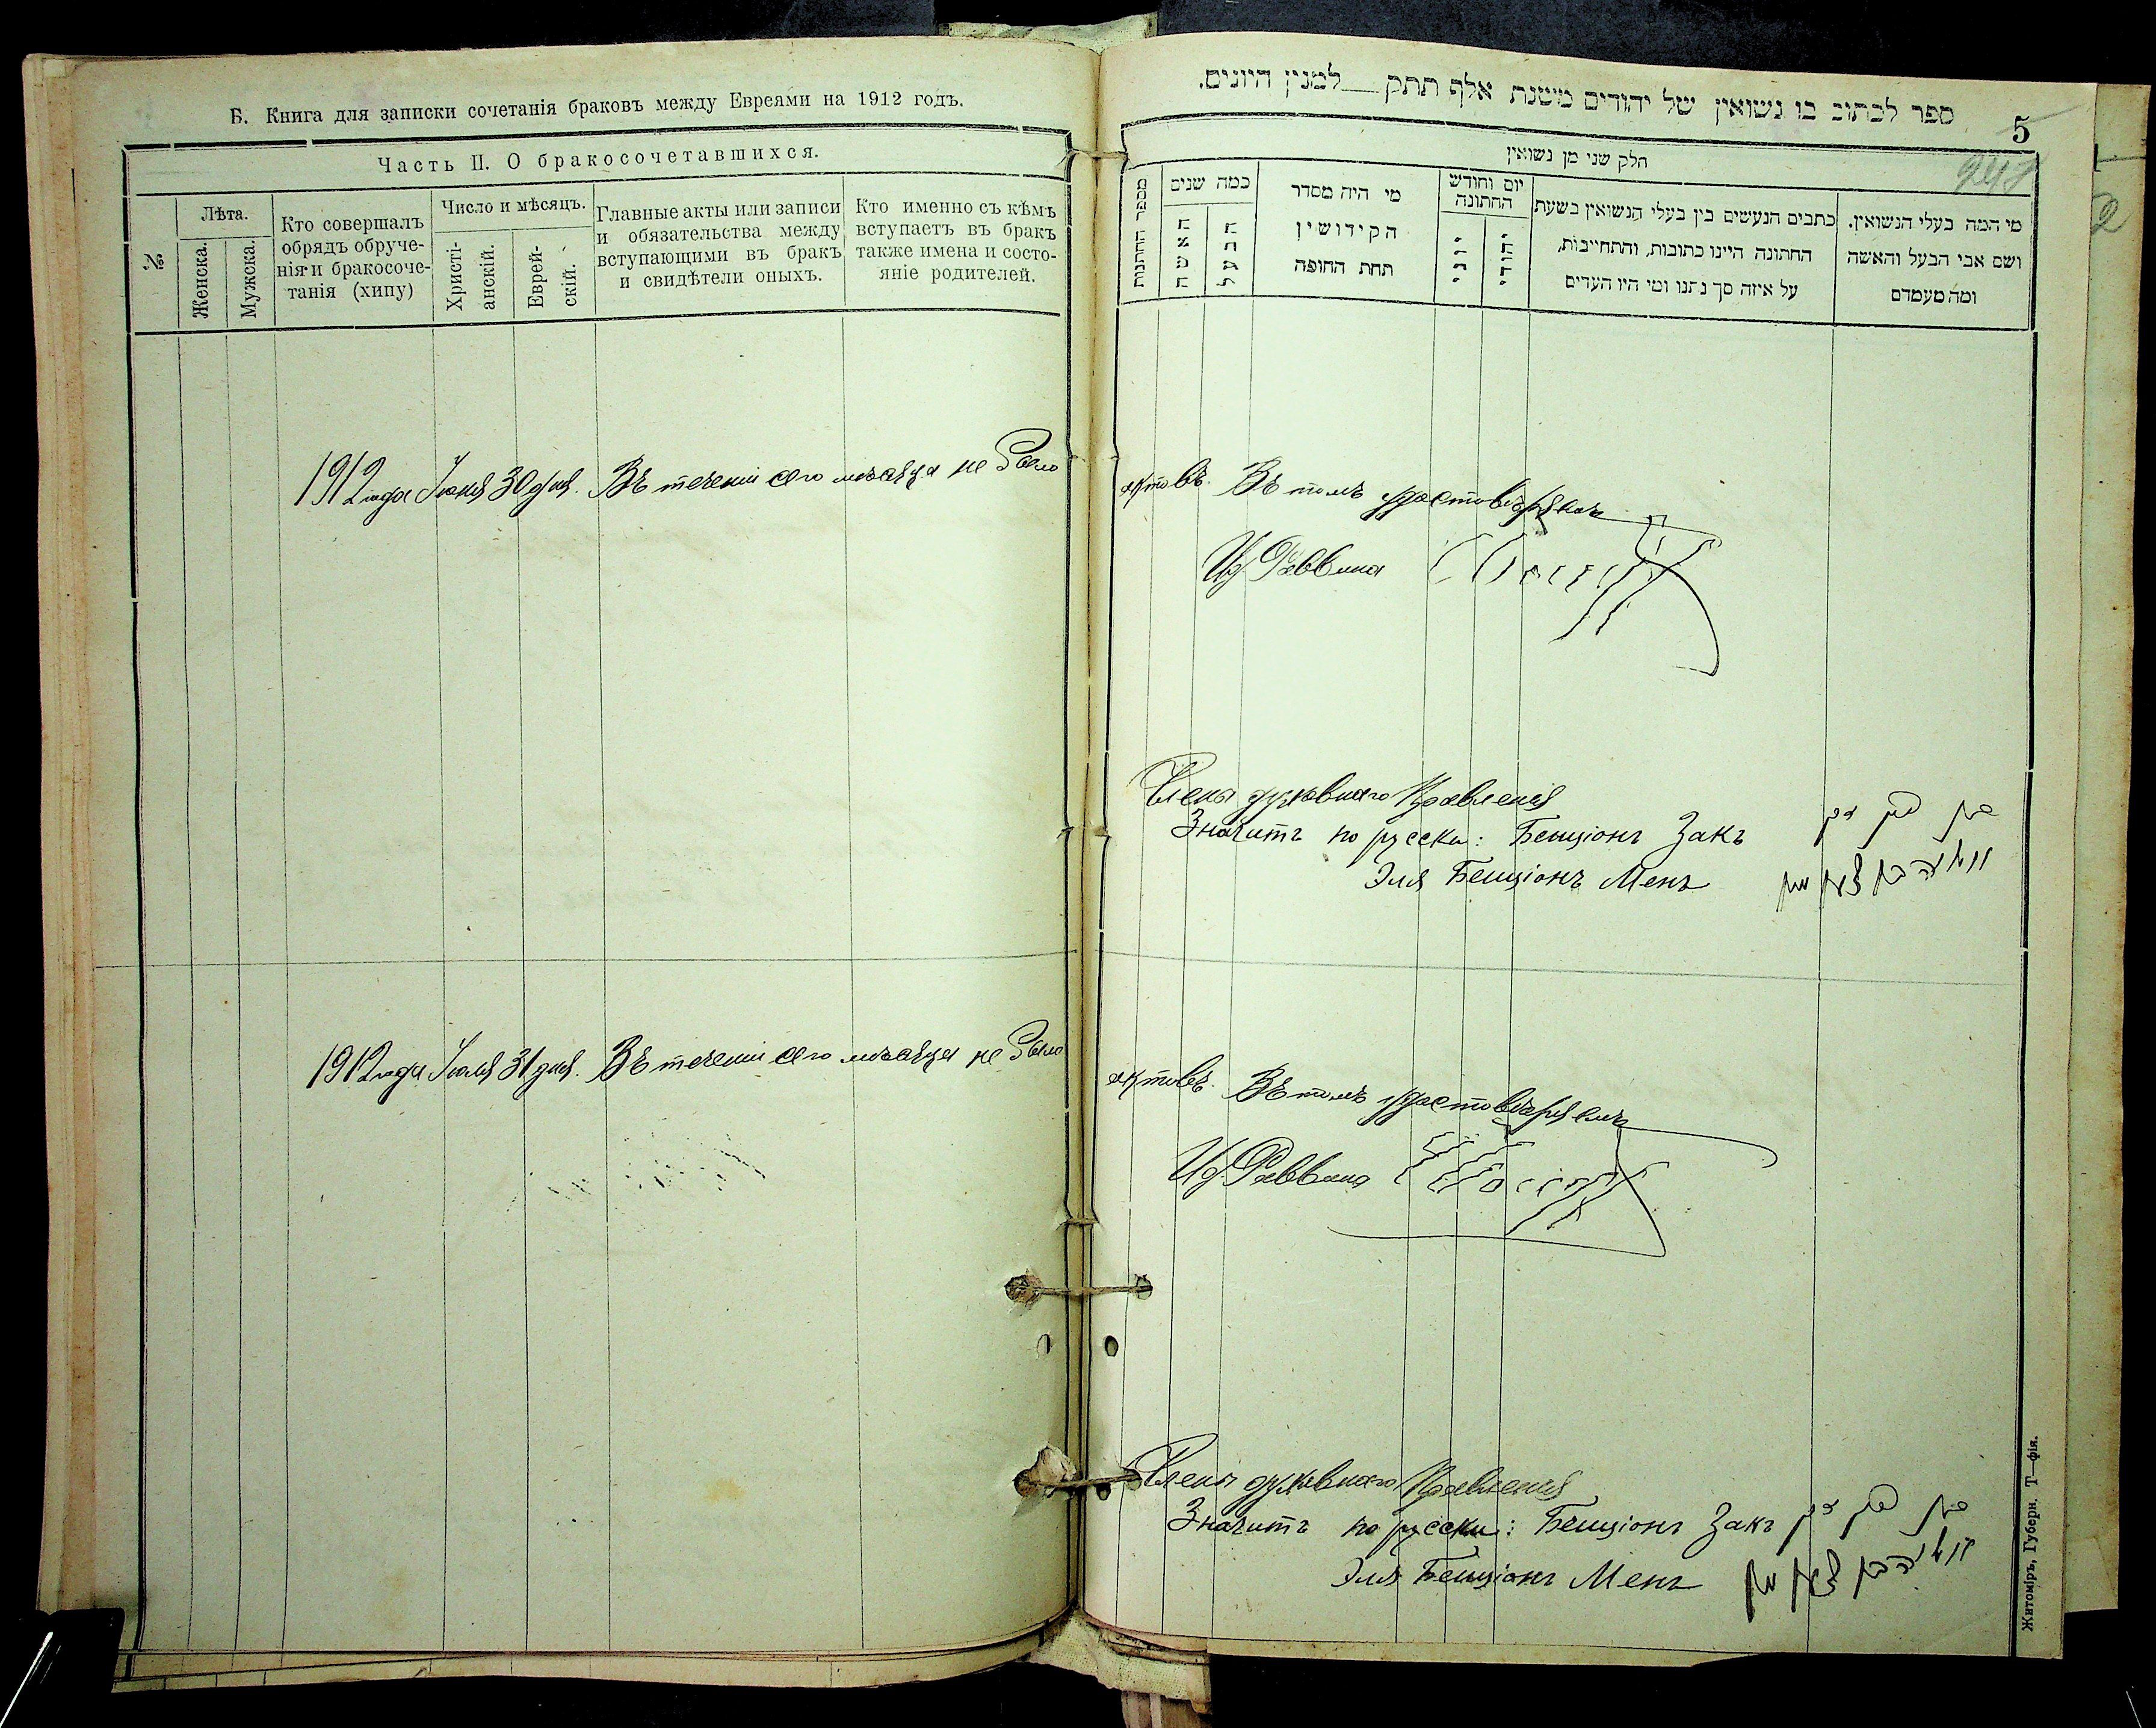 Б. Книга для записки сочетанія браковъ между Евреями на 1912 годъ.
Часть II. О бракосочетавшихся.
№
Лѣта.
Женска.
Мужска.
Кто совершалъ
обрядъ обруче-
нія и бракосоче-
танія (хипу)
Число и мѣсяцъ.
Христі-
анскій.
Еврей-
скій.
Главные акты или записи
и обязательства между
вступающими въ бракъ
и свидѣтели оныхъ.
Кто именно съ кѣмъ
вступаетъ въ бракъ
также имена и состо-
яніе родителей.
1912 года Іюня 30 дня. Въ теченіи сего мѣсяца не было
1912 года Іюля 31 дня. Въ теченіи сего мѣсяца не было
ספר לכתוב בו נשואין של יהודים משנת אלף תתק__למנין היונים.
5
248
חלק שני מן נשואין
מספר החתנות
כמה שנים
האשה
הבעל
מי היה מסדר
הקידושין
תחת החופה
יום וחודש
החתונה
יוני
יהודי
כתבים הנעשים בין בעלי הנשואין בשעת
החתונה היינו כתובות, והתחייבות,
על איזה סך נתנו ומי היו העדים
מי המה בעלי הנשואין.
ושם אבי הבעל והאשה
ומה מעמדם
актовъ. Въ томъ удостовѣряемъ
И д Раввина
Члены духовнаго Правленія
Значитъ по русски: Бенціонъ Закъ
Эля Бенціонъ Менъ
актовъ. Въ томъ удостовѣряемъ
И д Раввина
Члены духовнаго Правленія
Значитъ по русски: Бенціонъ Закъ
Эля Бенціонъ Менъ
Житоміръ, Губерн. Т—фія.